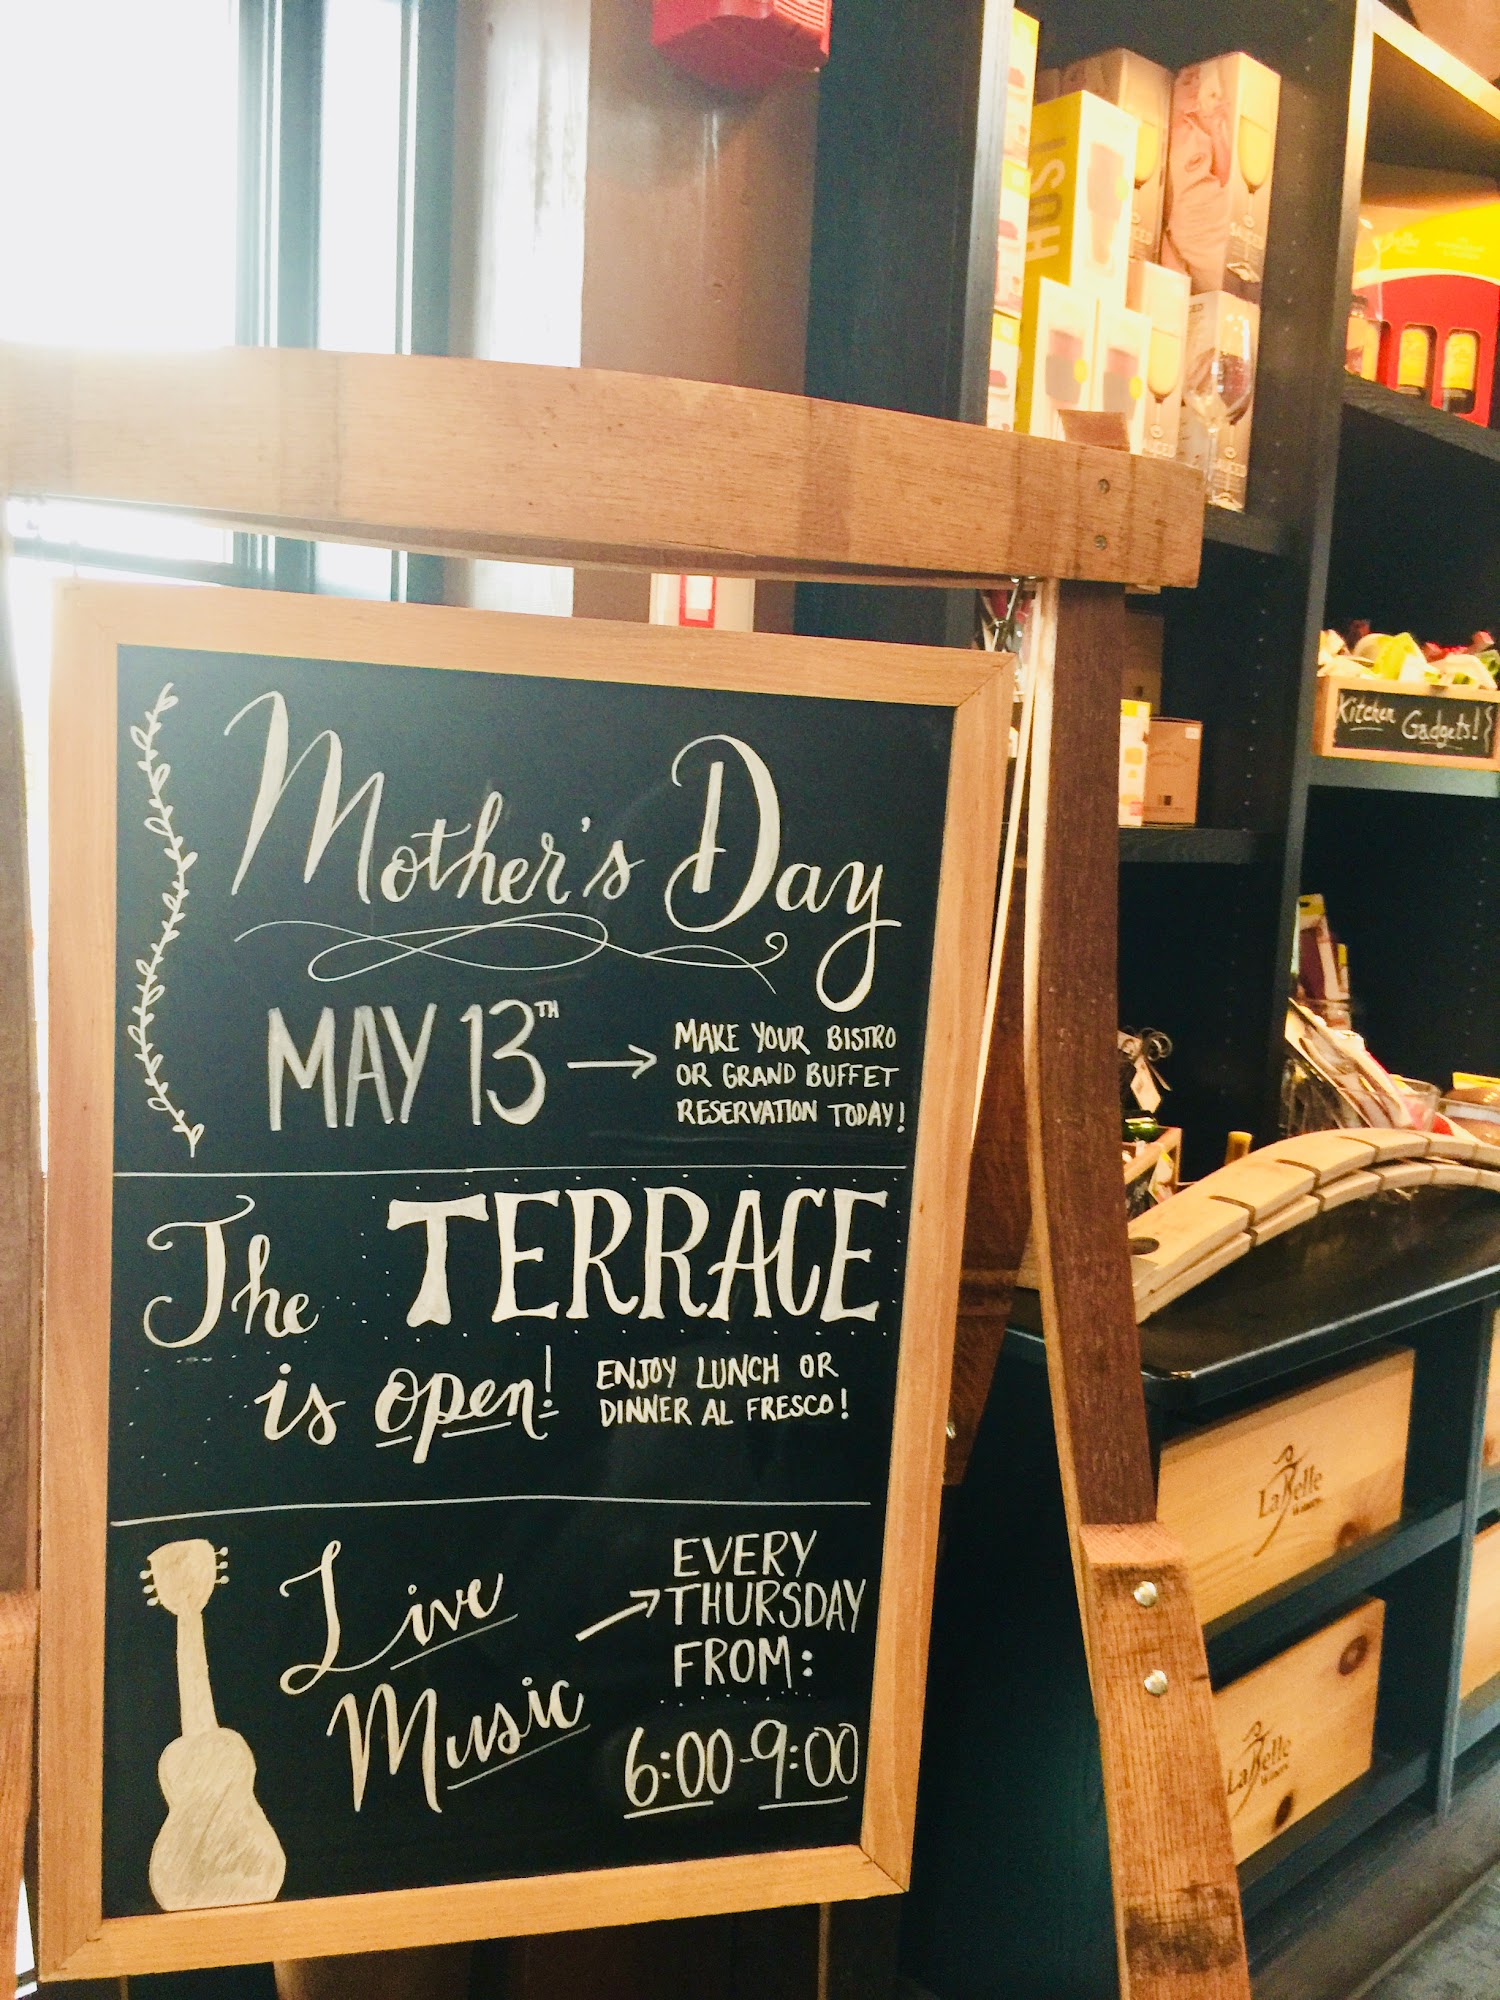 Mother's Day
MAY 13TH → MAKE YOUR BISTRO
OR GRAND BUFFET
RESERVATION TODAY!
The TERRACE
is open! ENJOY LUNCH OR
DINNER AL FRESCO!
Live
Music → EVERY
THURSDAY
FROM:
6:00-9:00
HOST
SAUCED
SAUCED
Kitchen Gadgets!
LaBelle
Winery
LaBelle
Winery